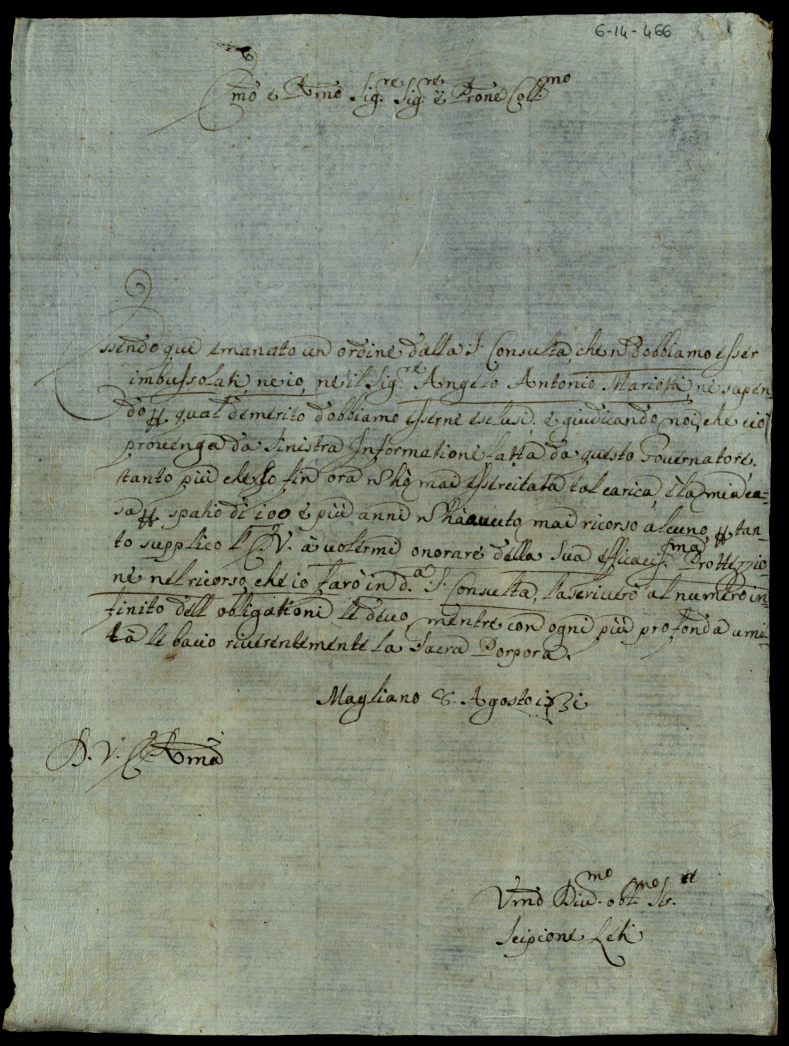 6-14-466
Emo e Rmo Sig.re Sig.re e Prone Coll.mo
Essendo quì emanato un ordine dalla S. Consulta, che n dobbiamo esser
imbussolati, ne io, ne il Sig.re Angelo Antonio Mariotti, ne sapen-
do qual demerito dobbiamo esserne esclusi, e giudicando noi, che ciò
provenga da sinistra Informatione fatta da questo Governatore,
tanto più ch'esso fin ora n hò mai essercitata tal carica, e la mia ca-
sa spatio di 100 e più anni n hà auuto mai ricorso alcuno, tan-
to supplico l'E.V. à volermi onorare della Sua efficaciss.ma Protezzio-
ne nel ricorso, che io farò in d.a S. Consulta, l'ascriuerò al numero in-
finito dell obligationi le deuo, mentre con ogni più profonda umil-
tà le bacio riuerentemente la Sacra Porpora.
Magliano 8. Agosto 1731
D. V. E. Rma
Vmo Diu.mo obl.mo Ser.
Scipione Leti